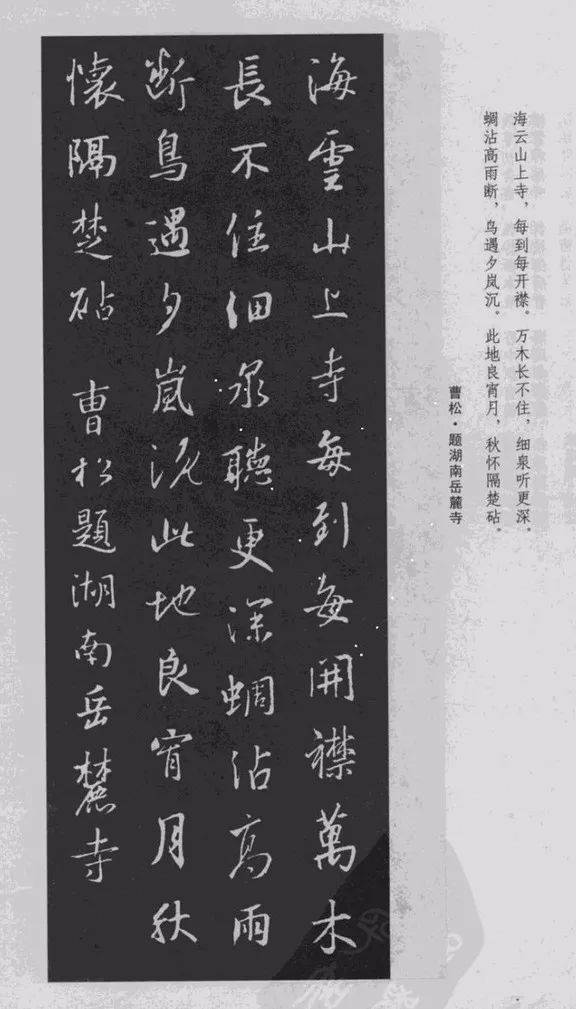 海云山上寺，每到每开襟。万木长不住，细泉听更深。
蜩沾高雨断，鸟遇夕岚沉。此地良宵月，秋怀隔楚砧。
曹松·题湖南岳麓寺
海雲山上寺每到每開襟萬木
長不住細泉聽更深蜩沾高雨
斷鳥遇夕嵐沉此地良宵月秋
懷隔楚砧 曹松題湖南岳麓寺